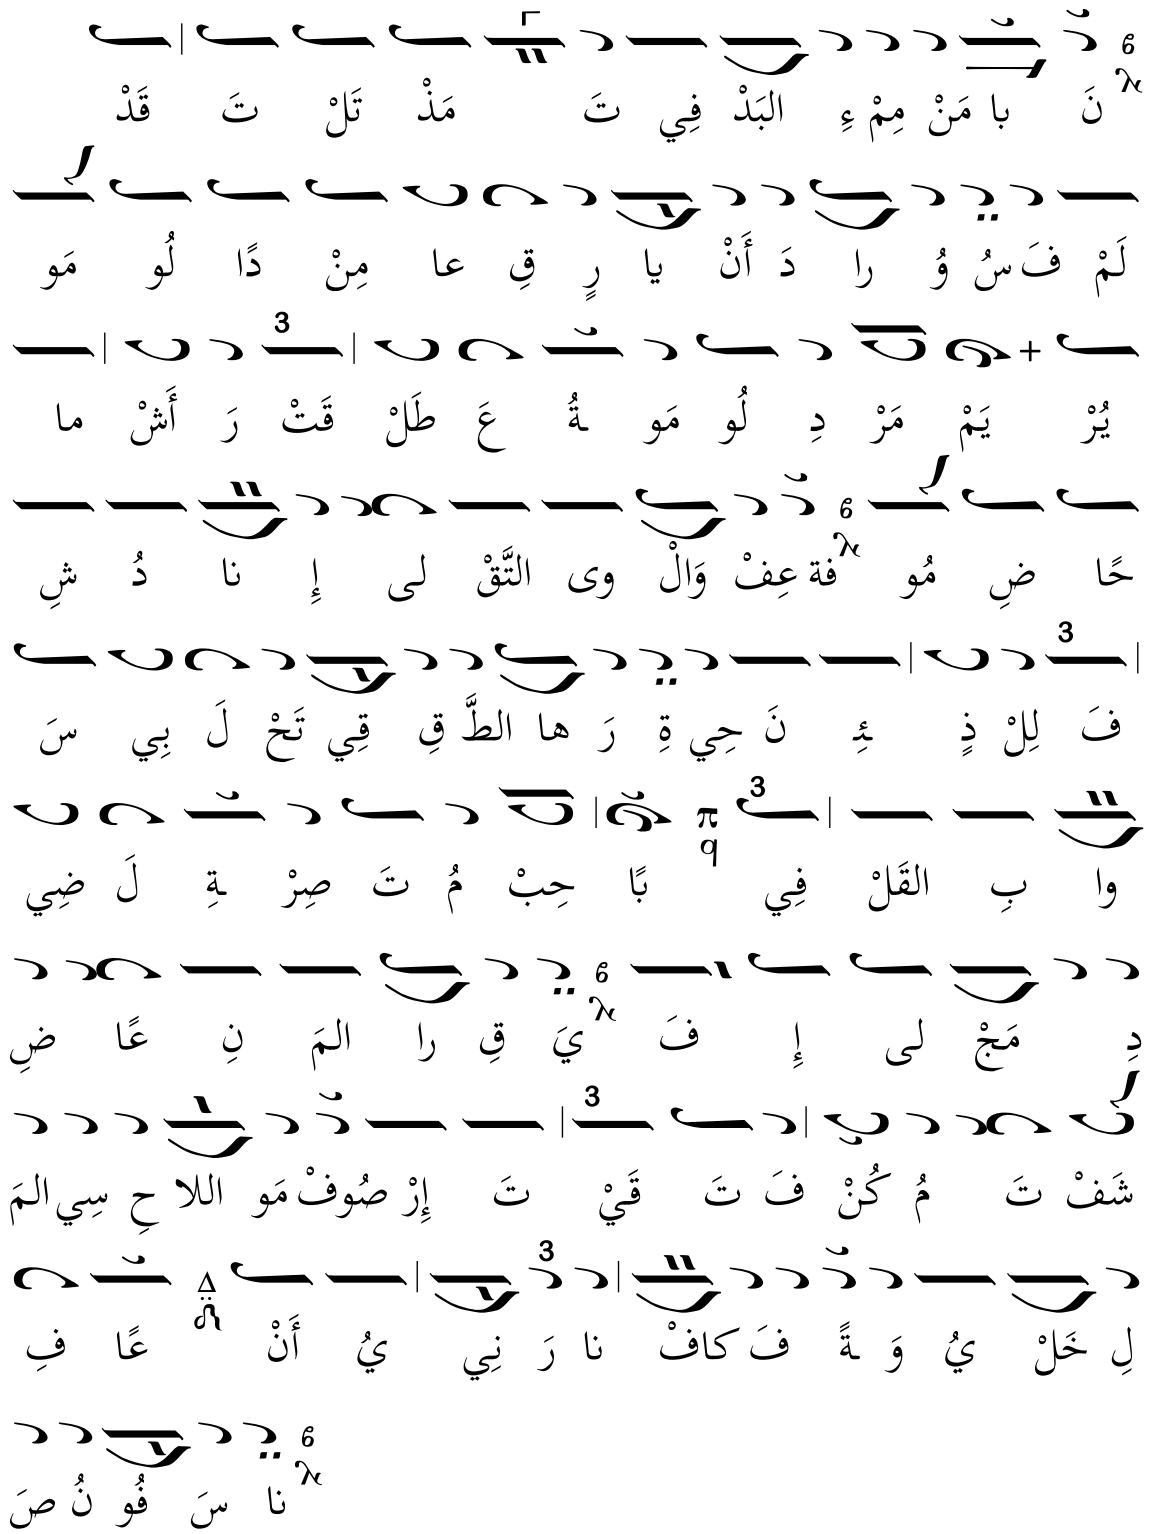 قَدْ تَ تَلْ مَذْ تَ فِي البَدْ ءِ مِمْ مَنْ با نَ
مَو لُو دًا مِنْ عا قِ رٍ يا أَنْ دَ را وُ سُ فَ لَمْ
ما أَشْ رَ قَتْ طَلْ عَ ـةُ مَو لُو دِ مَرْ يَمْ يُرْ
شِ دُ نا إِ لى التَّقْ وى وَالْ عِفْ فة مُو ضِ حًا
سَ بِي لَ تَحْ قِي قِ الطَّ ها رَ ةِ حِي نَ ئِـ ذٍ لِلْ فَ
ضِي لَ ـةِ صِرْ تَ مُ حِبْ بًا فِي القَلْ بِ وا
ضِ عًا نِ المَ را قِ يَ فَ إِ لى مَجْ دِ
المَ سِي حِ اللا مَو صُوفْ إِرْ تَ قَيْ تَ فَ كُنْ مُ تَ شَفْ
فِ عًا أَنْ يُ نِي رَ نا كافْ فَ ـةً وَ يُ خَلْ لِ
صَ نُ فُو سَ نا